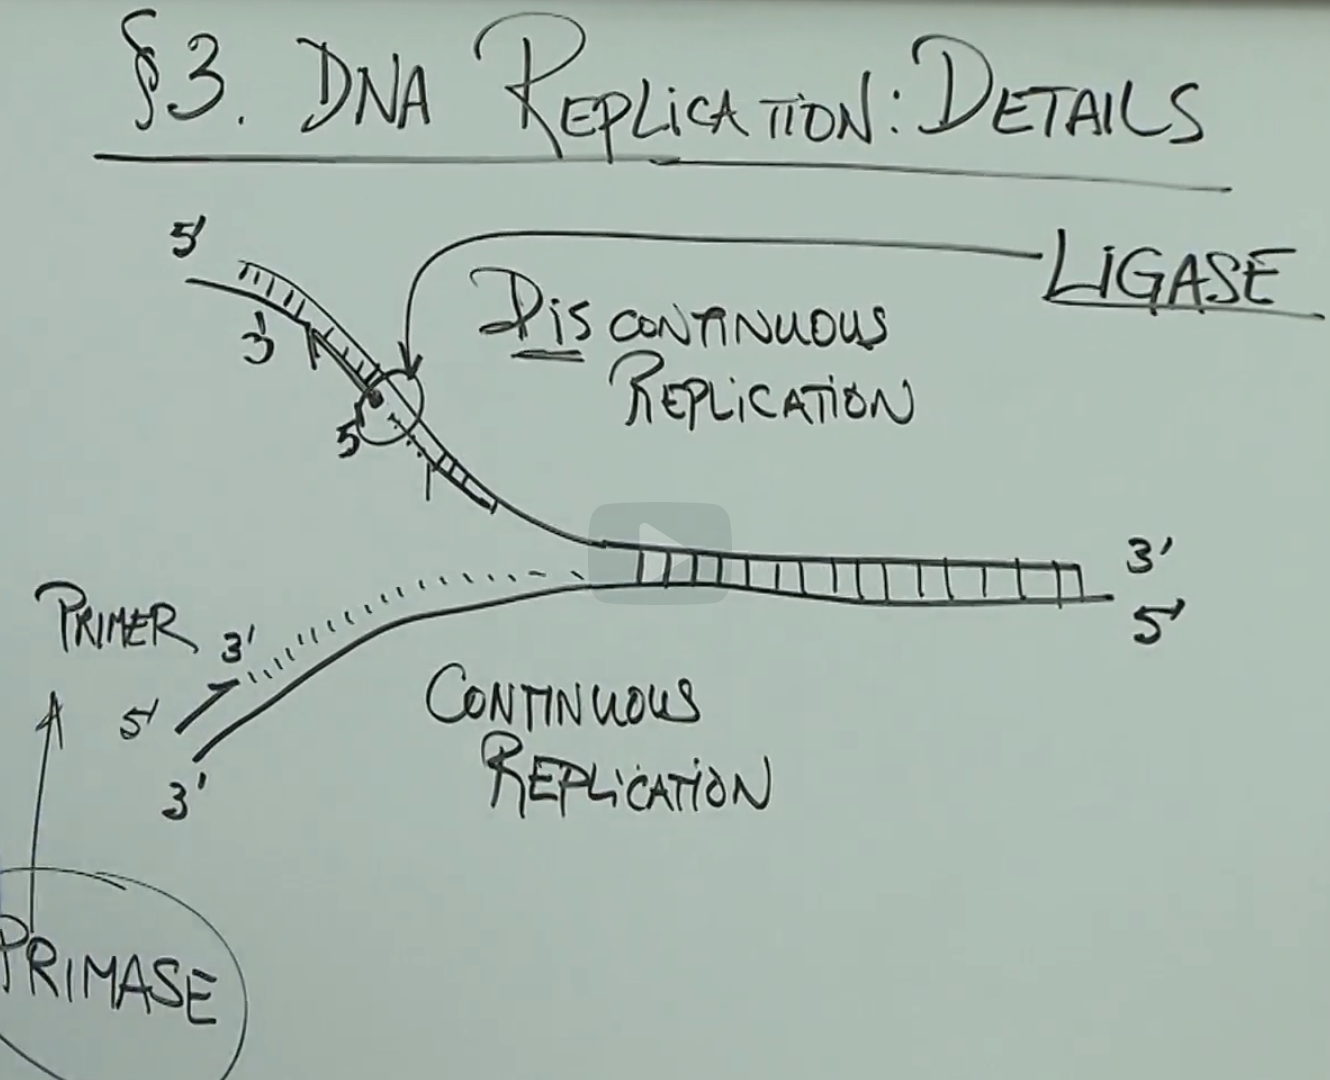 §3. DNA REPLICATION: DETAILS
5'
LIGASE
DISCONTINUOUS
REPLICATION
3'
5'
3'
5'
PRIMER
3'
5'
3'
CONTINUOUS
REPLICATION
PRIMASE